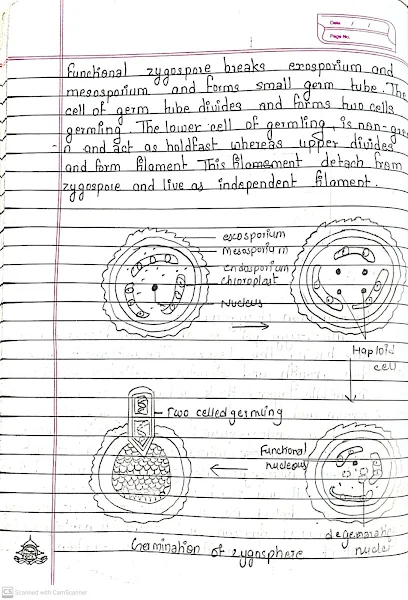 Date / /
Page No.
Functional zygospore breaks exosporium and
mesosporium and forms small germ tube. The
cell of germ tube divides and forms two cells
germling. The lower cell of germling, is non-gree
n and act as holdfast whereas upper divides
and form filament This filamement detach from
zygospore and live as independent filament.
excosporium
Mesosporium
Endosporium
chloroplast
Nucleus
Haploid
cell
Two celled germling
Functional
nucleous
degenerating
nuclei
Germination of zygosphere
CS Scanned with CamScanner